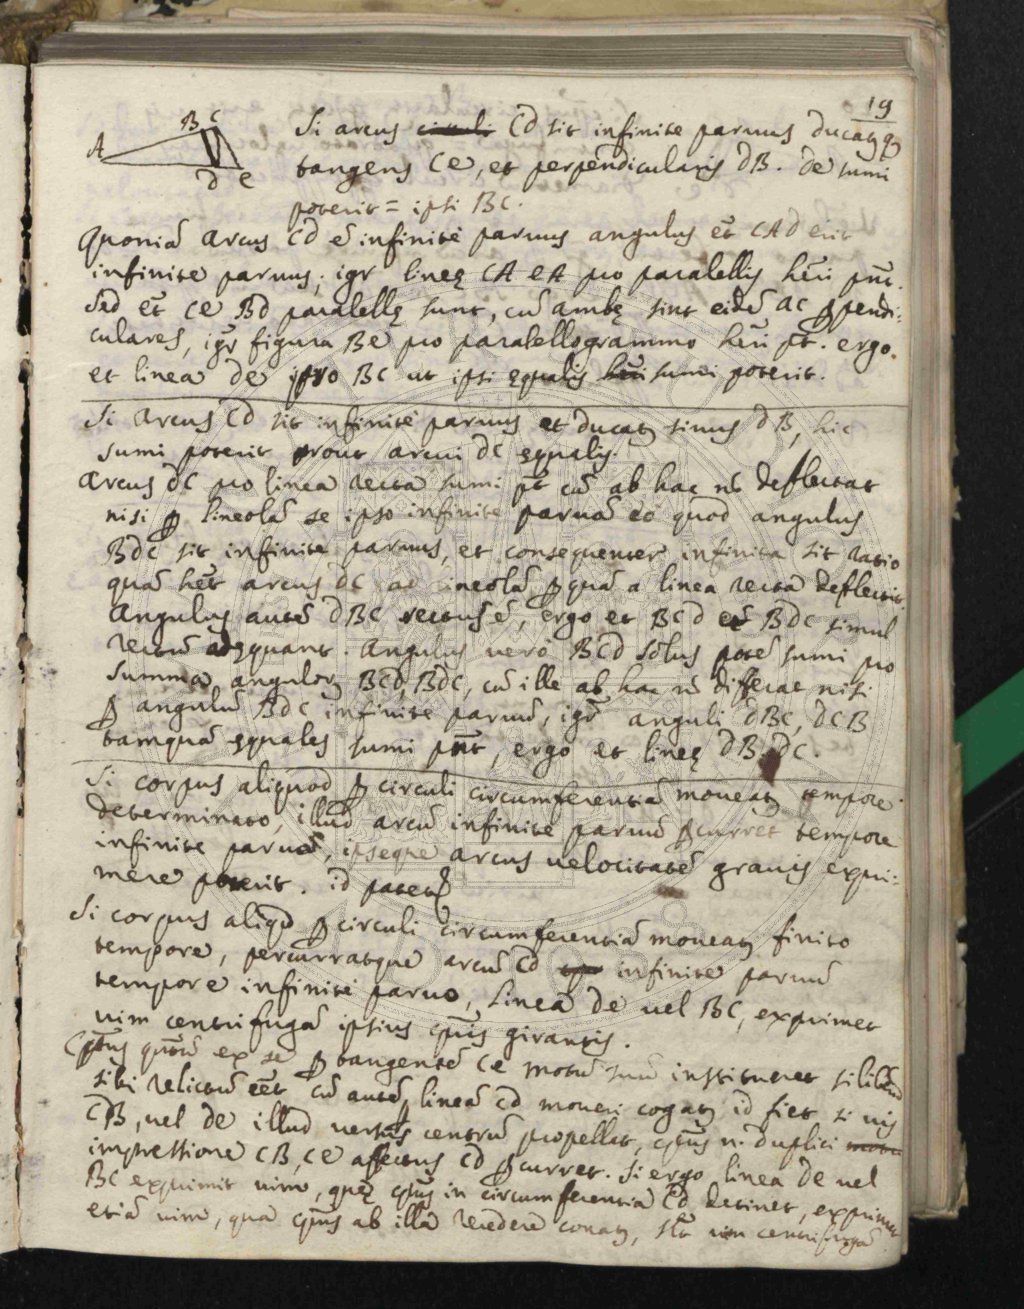 19
A B C D E
Si arcus circuli CD sit infinite parvus ducatq
tangens CE, et perpendicularis DB. DE sumi
poterit = ipsi BC.
Quoniã arcus CD ẽ infinite parvus angulus et̃ CAD erit
infinite parvus, igr̃ lineę CA EA pro parallelis hr̃i pnt̃.
Sed et̃ CE BD parallelę sunt, cũ ambę sint eidẽ AC ꝑpendi-
culares, igr̃ figura BE pro parallelogrammo hr̃i pt̃. ergo
et linea DE pro BC ut ipsi ęqualis sumi poterit.
Si arcus CD sit infinite parvus et ducatꝶ sinus DB, hic
sumi poterit prout arcui DC ęqualis.
Arcus DC pro linea recta sumi pt̃ cũ ab hac nõ deflectat
nisi ꝑ lineolã se ipso infinite parvã eo quod angulus
BDC sit infinite parvus, et consequenter infinita sit ratio
quã het̃ arcus DC ad lineolã ꝑ quã a linea recta deflectit.
Angulus autẽ DBC rectus ẽ, ergo et BCD et̃ BDC simul
rectũ adęquant. Angulus vero BCD solus potẽ sumi pro
summa angulorꝶ BCD, BDC, cũ ille ab hac nõ differat nisi
ꝑ angulũ BDC infinite parvũ, igr̃ anguli DBC, DCB
tamquã ęquales sumi pnt̃, ergo et lineę DB, DC.
Si corpus aliquod ꝑ circuli circumferentiã moveatꝶ tempore
determinato, illud arcũ infinite parvũ ꝑcurret tempore
infinite parvo, ipseque arcus velocitatẽ gravis expri-
mere poterit. id patet
Si corpus aliqd̃ ꝑ circuli circumferentiã moveatꝶ finito
tempore, percurratque arcũ CD infinite parvũ
tempore infinite parvo, linea DE vel BC, exprimet
vim centrifugã ipsius cp̃is girantis.
Cp̃us quõũ ex se ꝑ tangentẽ CE motũ suũ institueret si libẽ
sibi relictũ eet̃ cũ autẽ ꝑ lineã CD moveri cogatꝶ id fiet si vis
CB, vel DE illud versus centrũ propellat, cp̃us n. duplici
impressione CB, CE affectus CD ꝑcurret. Si ergo linea DE vel
BC exprimit vim, quę cp̃us in circumferentiã CD detinet, exprimet
etiã vim, qua cp̃us ab illa recedere conatꝶ, vim centrifugã